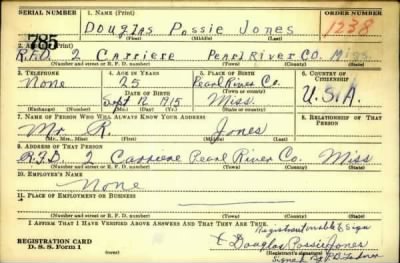 SERIAL NUMBER 1. Name (Print) ORDER NUMBER
785 Douglas Possie Jones 1238
(First) (Middle) (Last)
2. Address (Print)
R.F.D 2 Carriere Pearl River Co. Miss
(Number and street or R. F. D. number) (Town) (County) (State)
3. Telephone 4. Age in Years 5. Place of Birth 6. Country of Citizenship
None 25 Pearl River Co. U.S.A.
Date of Birth (Town or county)
Sept 12 1915 Miss.
(Exchange) (Number) (Mo.) (Day) (Yr.) (State or country)
7. Name of Person Who Will Always Know Your Address 8. Relationship of That Person
Mr R. Jones
(Mr., Mrs., Miss) (First) (Middle) (Last)
9. Address of That Person
R.F.D. 2 Carriere Pearl River Co. Miss
(Number and street or R. F. D. number) (Town) (County) (State)
10. Employer's Name
None
11. Place of Employment or Business
(Number and street or R. F. D. number) (Town) (County) (State)
I Affirm That I Have Verified Above Answers And That They Are True.
Registrant unable to sign
REGISTRATION CARD Douglas Possie Jones
D. S. S. Form 1 (Registrant's signature)
Signed By